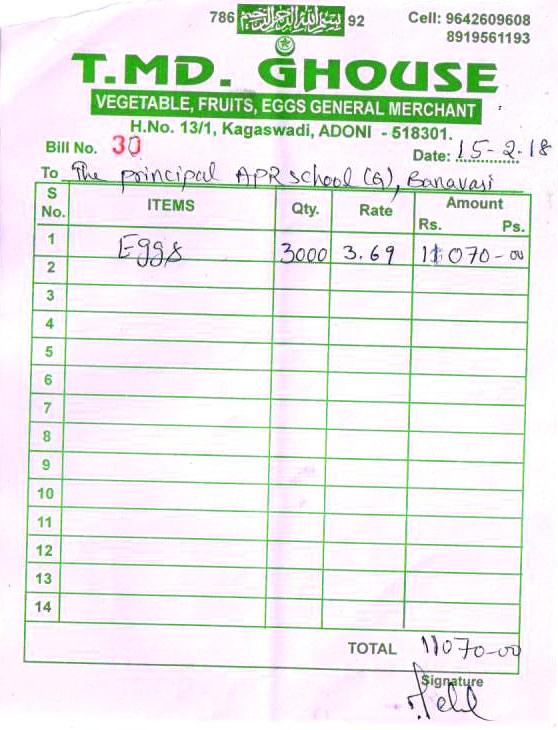 786 بسم الله الرحمن الرحيم 92
Cell: 9642609608
8919561193
T.MD. GHOUSE
VEGETABLE, FRUITS, EGGS GENERAL MERCHANT
H.No. 13/1, Kagaswadi, ADONI - 518301.
Bill No. 30
Date: 15-2-18
To The principal APR School (G), Banavasi
S No. ITEMS Qty. Rate Amount Rs. Ps.
1 Eggs 3000 3.69 11070-00
2
3
4
5
6
7
8
9
10
11
12
13
14
TOTAL 11070-00
Signature